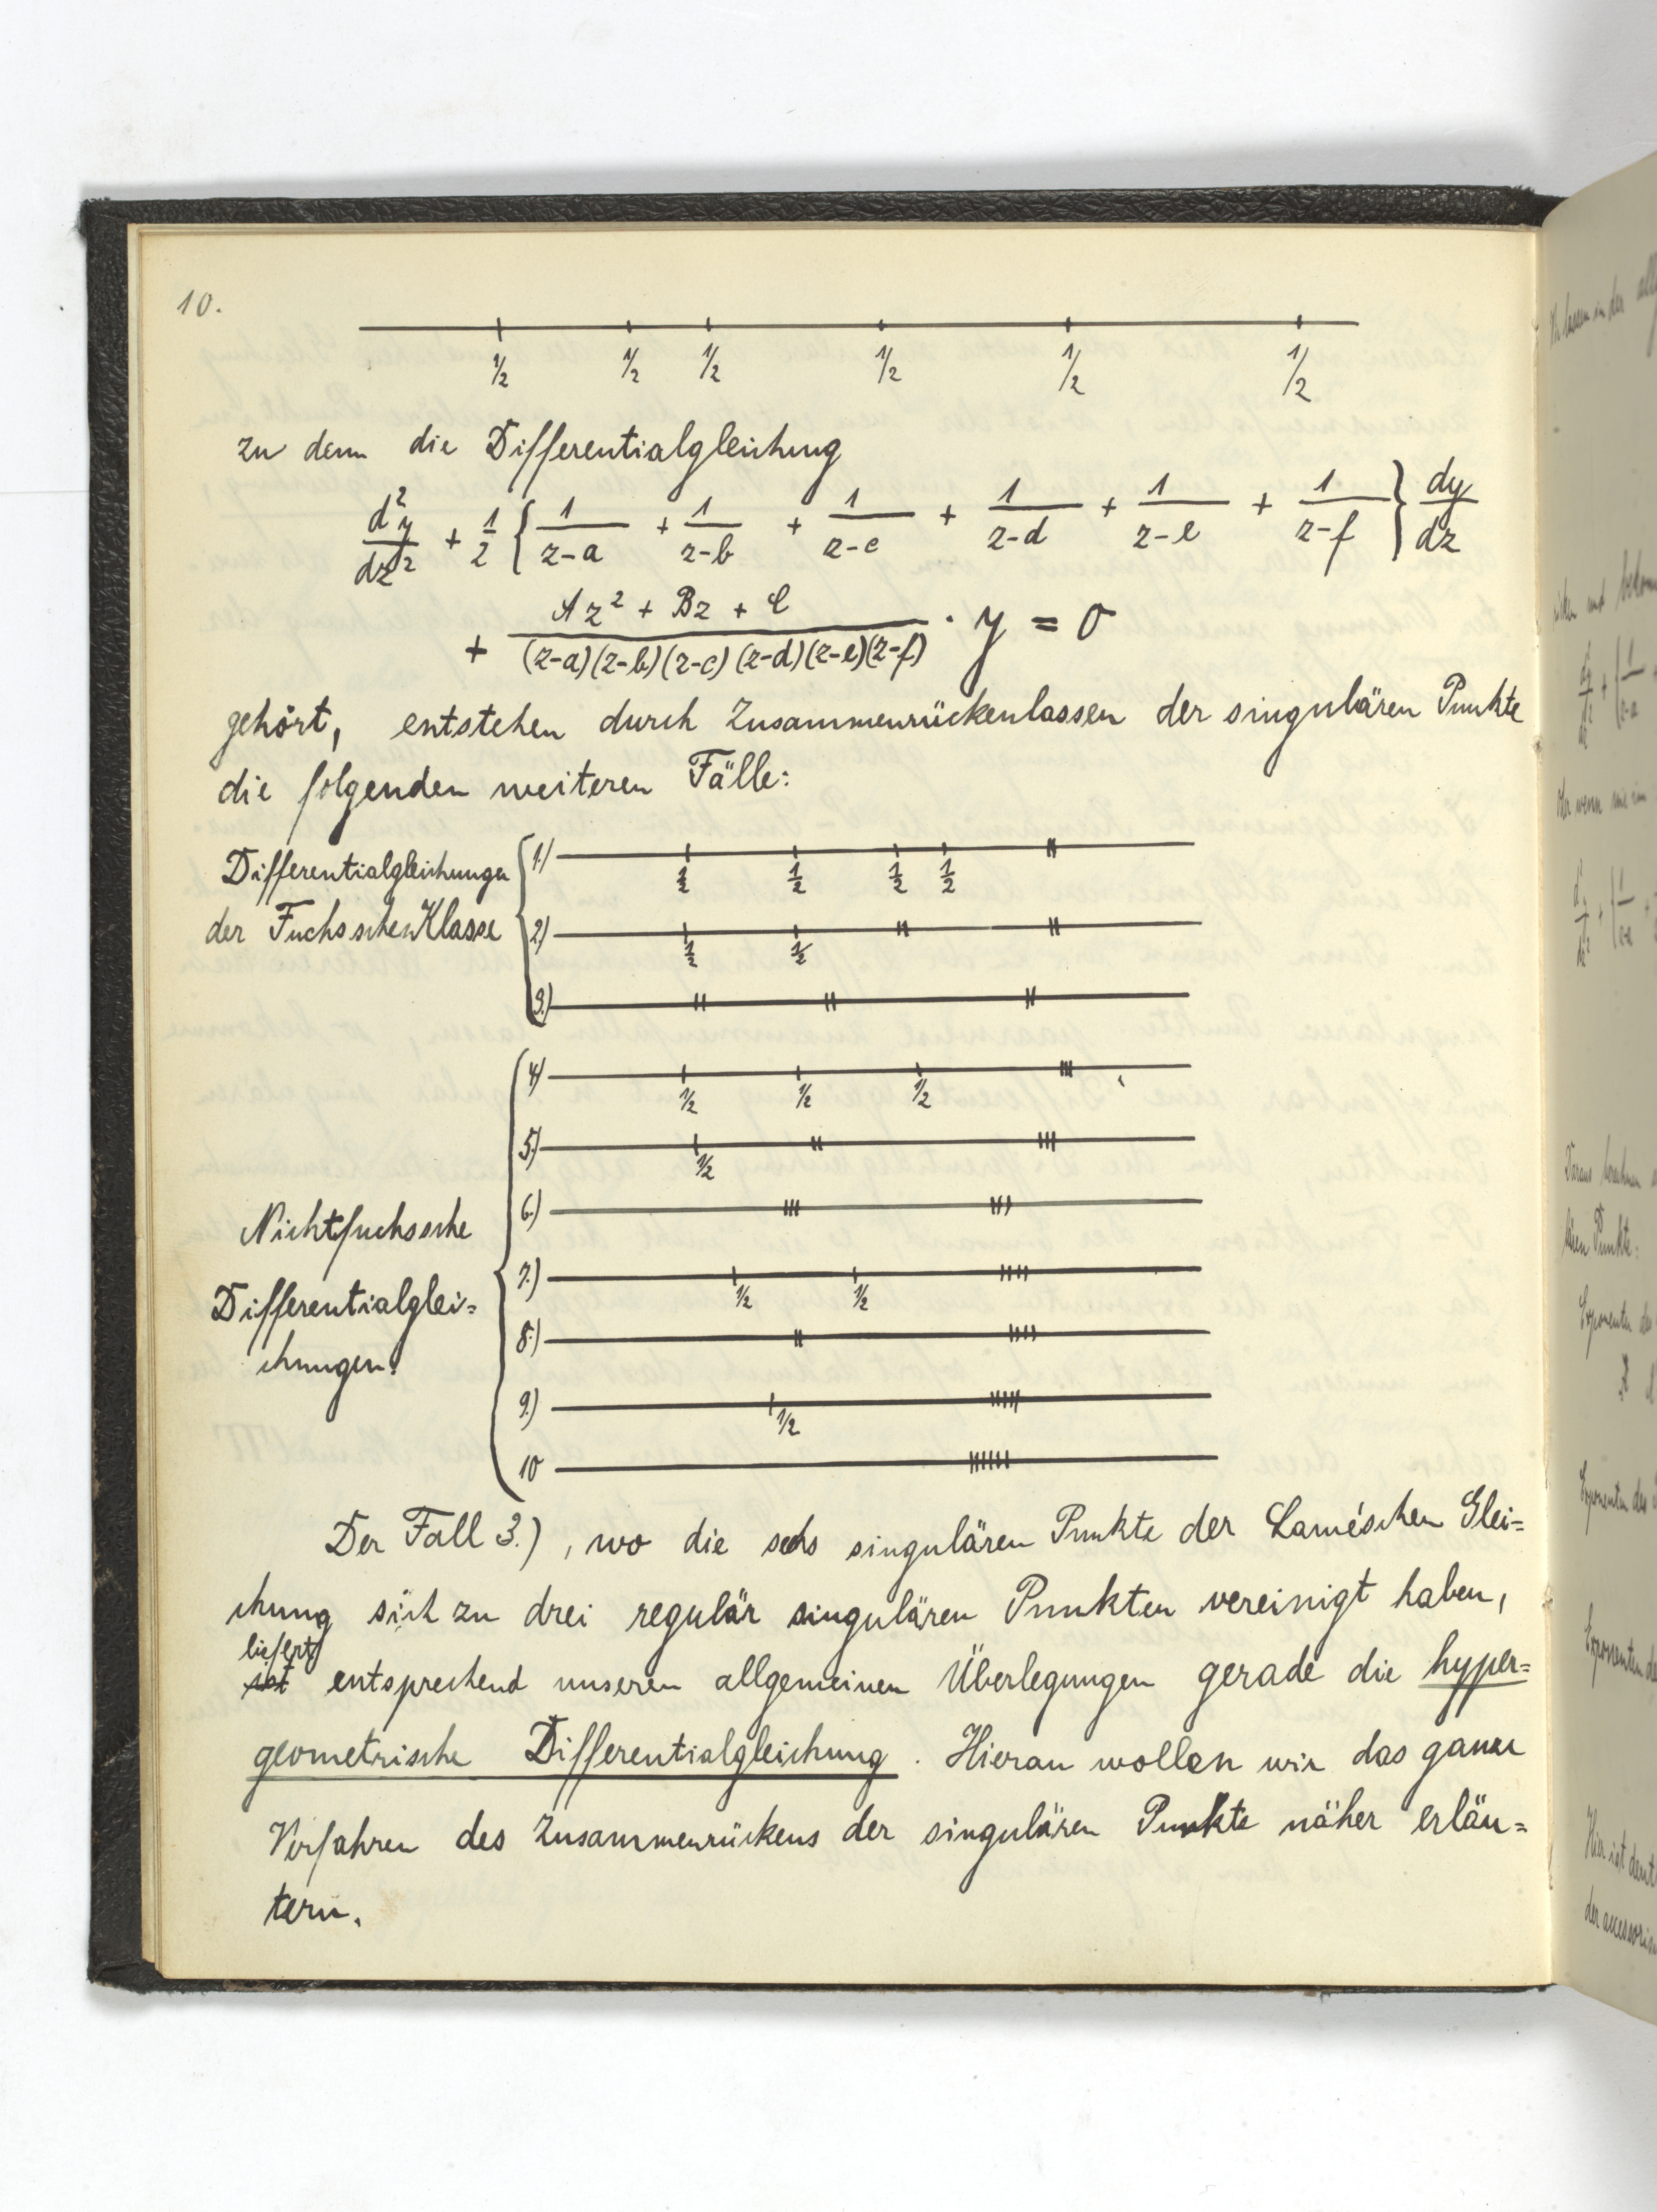 10.
1/2 1/2 1/2 1/2 1/2 1/2
zu dem die Differentialgleichung
d²y/dz² + 1/2 { 1/(z-a) + 1/(z-b) + 1/(z-c) + 1/(z-d) + 1/(z-e) + 1/(z-f) } dy/dz
+ (Az² + Bz + C)/((z-a)(z-b)(z-c)(z-d)(z-e)(z-f)) · y = 0
gehört, entstehen durch Zusammenrückenlassen der singulären Punkte
die folgenden weiteren Fälle:
Differentialgleichungen
der Fuchsschen Klasse
1.) 1/2 1/2 1/2 1/2
2.) 1/2 1/2
3.)
Nichtfuchssche
Differentialglei=
chungen.
4.) 1/2 1/2 1/2
5.) 1/2
6.)
7.) 1/2 1/2
8.)
9.) 1/2
10
Der Fall 3.), wo die sechs singulären Punkte der Lamé'schen Glei=
chung sich zu drei regulär singulären Punkten vereinigt haben,
liefert
ist entsprechend unseren allgemeinen Überlegungen gerade die hyper=
geometrische Differentialgleichung. Hieran wollen wir das ganze
Verfahren des Zusammenrückens der singulären Punkte näher erläu=
tern.